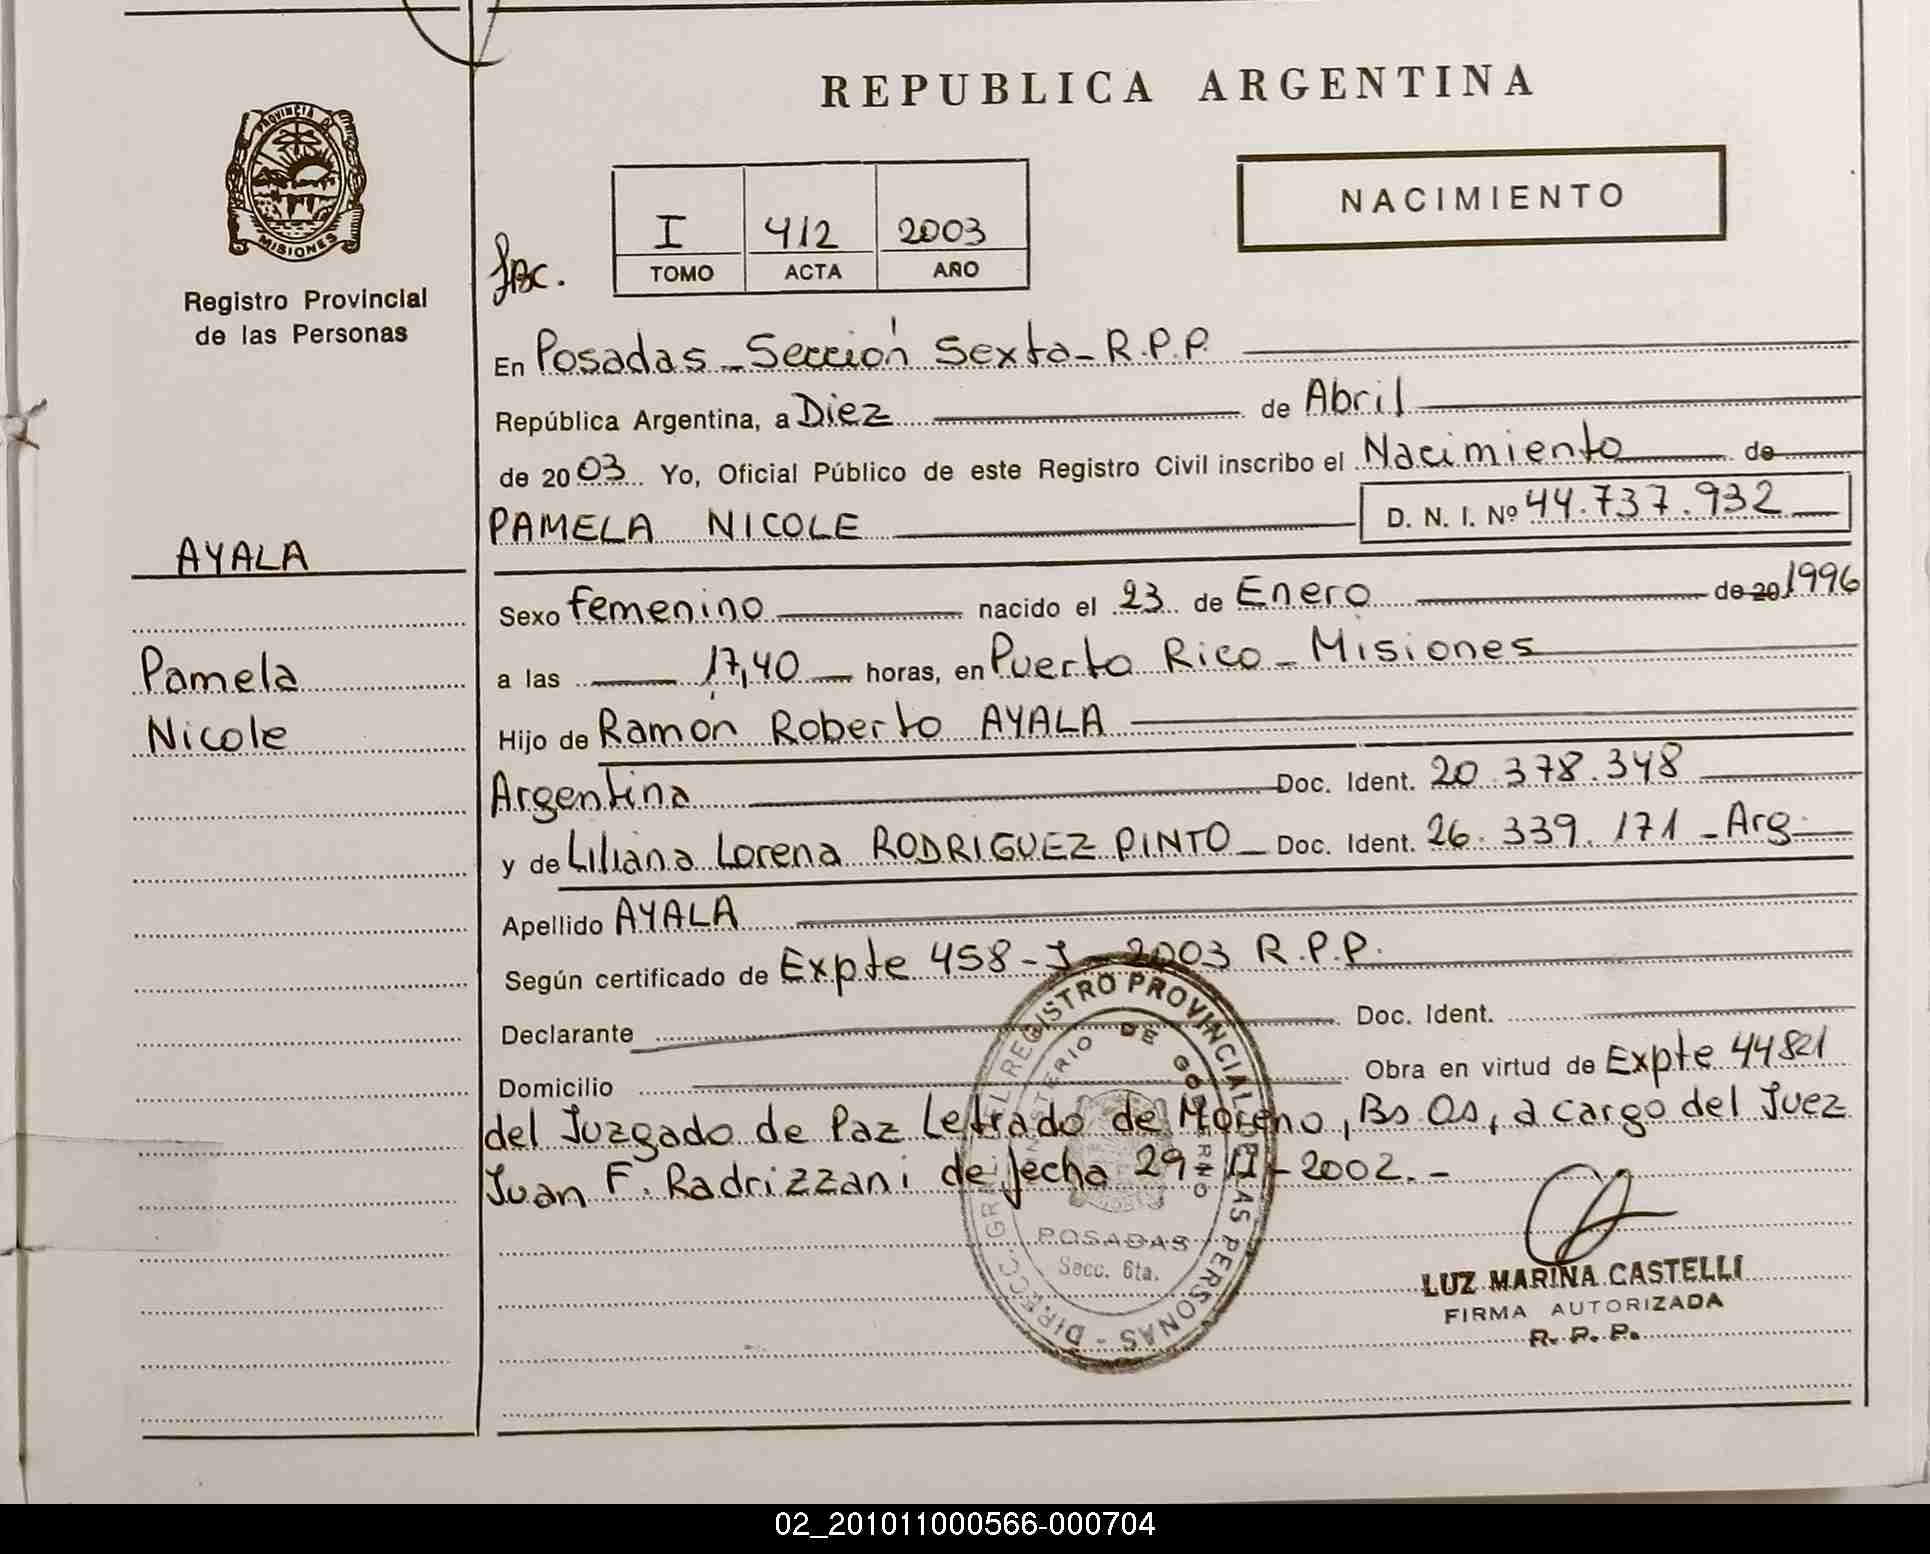 REPUBLICA ARGENTINA
PROVINCIA DE
MISIONES
Registro Provincial
de las Personas
NACIMIENTO
I 412 2003
TOMO ACTA AÑO
En Posadas - Sección Sexta - R.P.P.
República Argentina, a Diez de Abril
de 2003 Yo, Oficial Público de este Registro Civil inscribo el Nacimiento de
PAMELA NICOLE D. N. I. Nº 44.737.932
AYALA
Pamela
Nicole
Sexo femenino nacido el 23 de Enero de 20 1996
a las 17,40 horas, en Puerto Rico - Misiones
Hijo de Ramón Roberto AYALA
Argentina Doc. Ident. 20.378.348
y de Liliana Lorena RODRIGUEZ PINTO - Doc. Ident. 26.339.171 - Arg.
Apellido AYALA
Según certificado de Expte 458 - J - 2003 R.P.P.
Declarante Doc. Ident.
Domicilio Obra en virtud de Expte 44821
del Juzgado de Paz Letrado de Moreno, Bs As, a cargo del Juez
Juan F. Radrizzani de fecha 29 - 11 - 2002. -
DIRECC. GRAL. DEL REGISTRO PROVINCIAL DE LAS PERSONAS -
MINISTERIO DE GOBIERNO
POSADAS
Secc. 6ta.
LUZ MARINA CASTELLI
FIRMA AUTORIZADA
R. P. P.
02_201011000566-000704